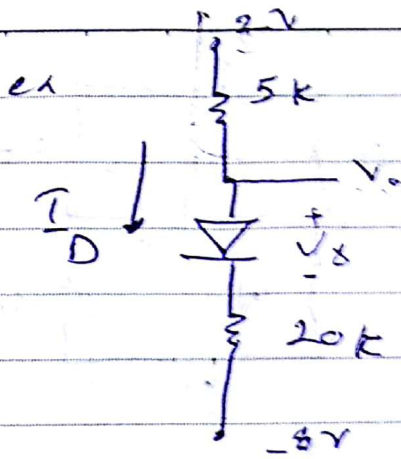 +2V
ex
5k
Vo
I
D
+
Vγ
-
20k
-8V